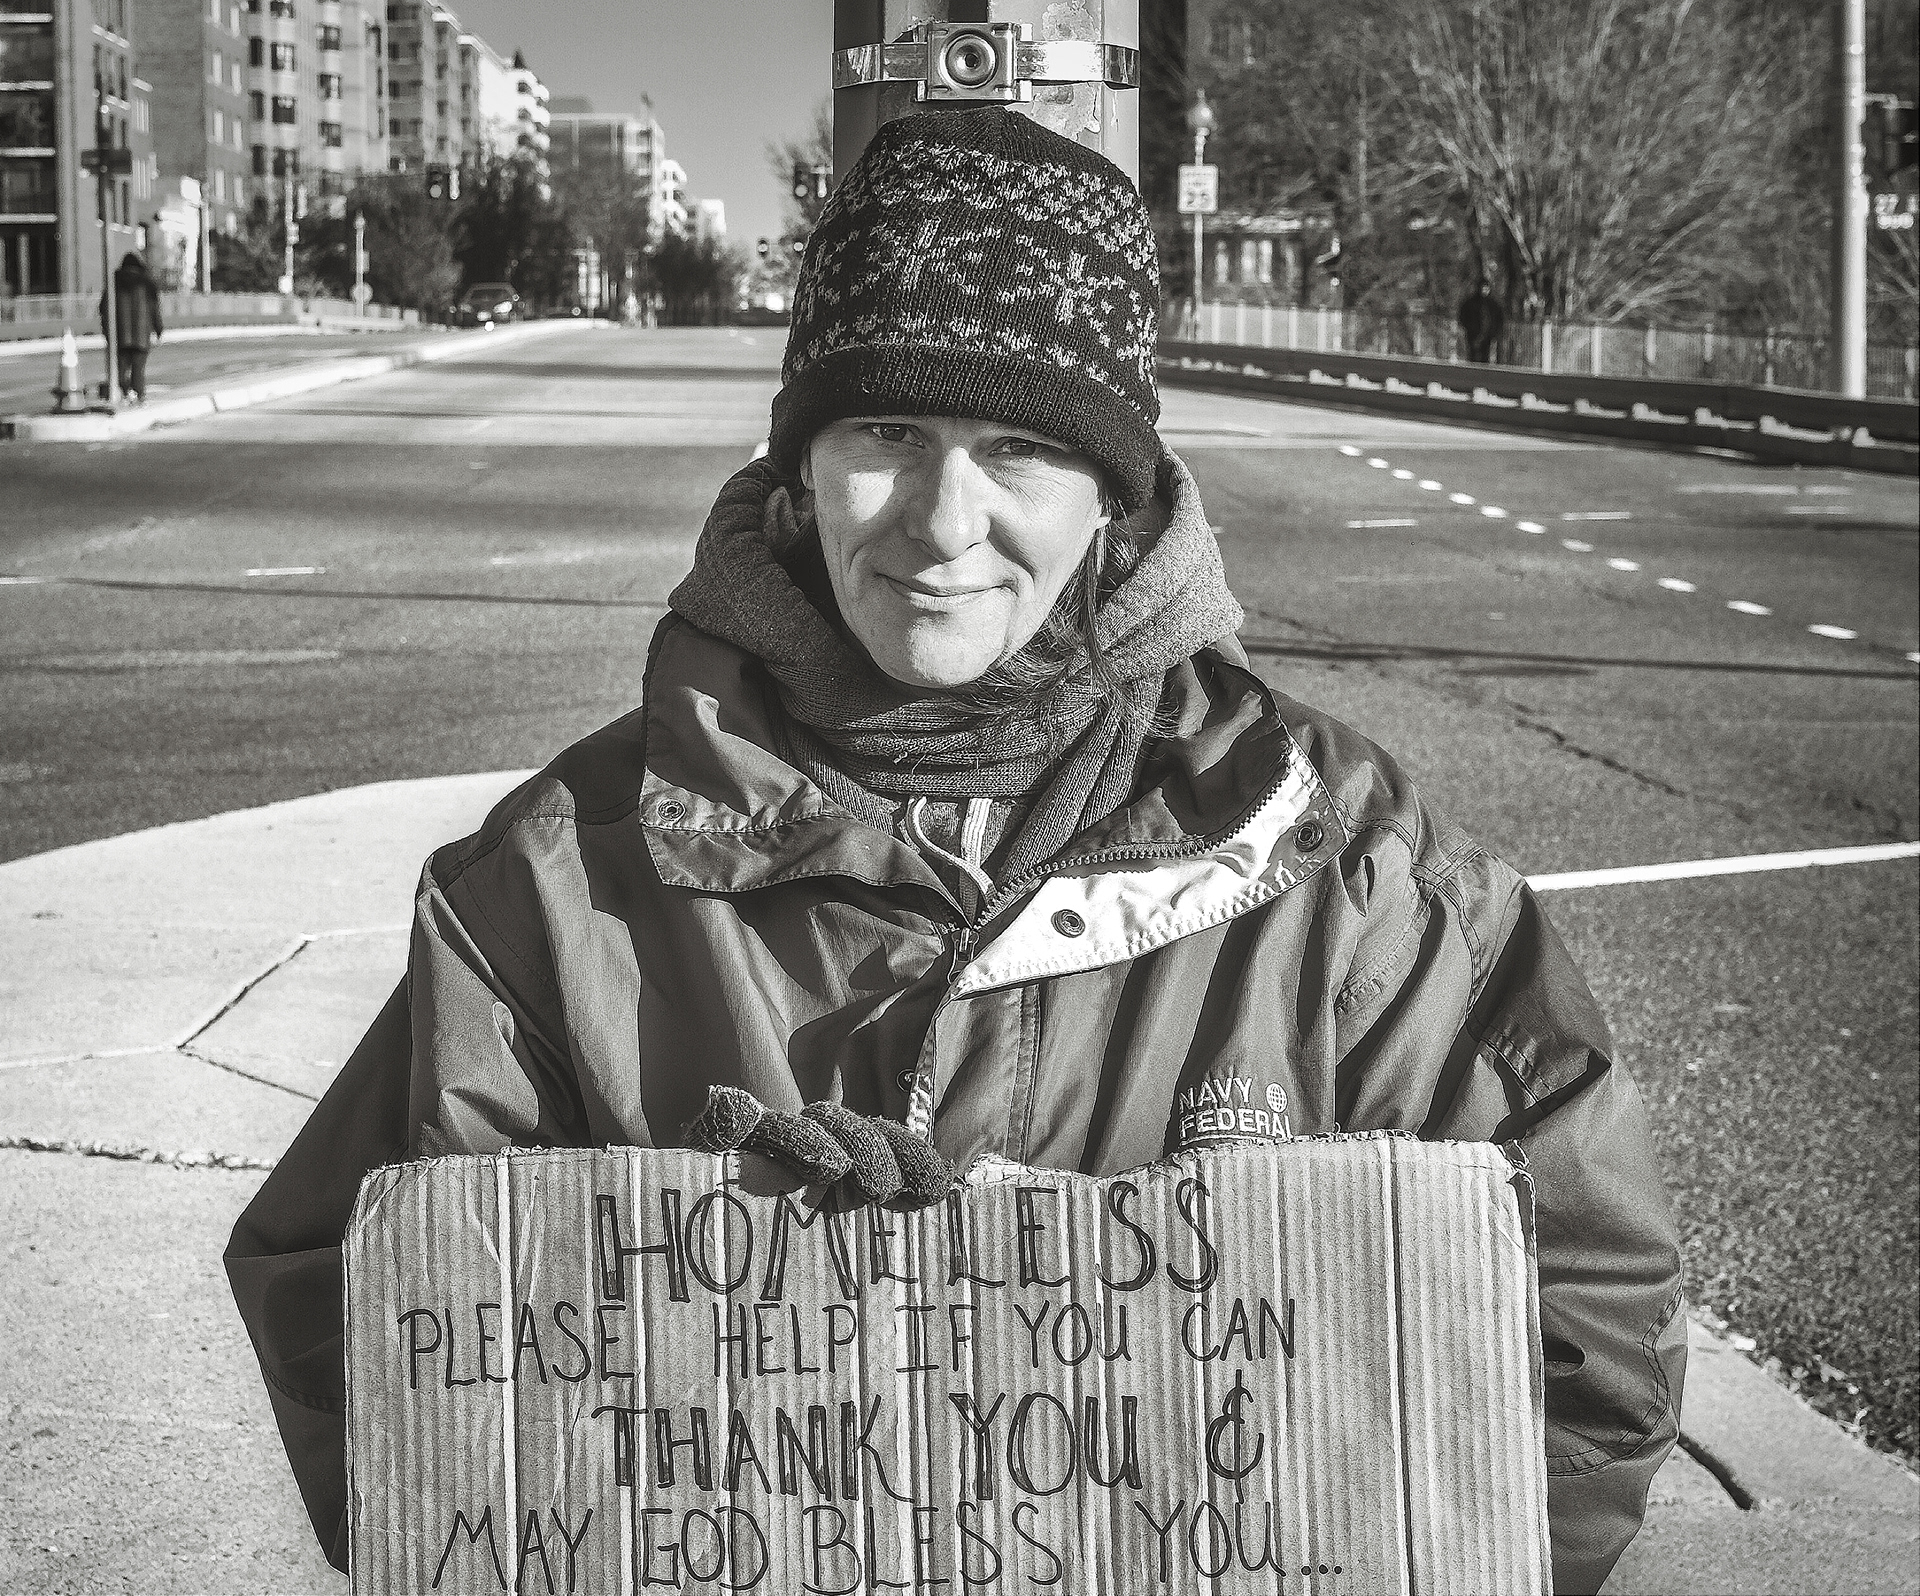 25
NAVY
FEDERAL
HOMELESS
PLEASE HELP IF YOU CAN
THANK YOU &
MAY GOD BLESS YOU...